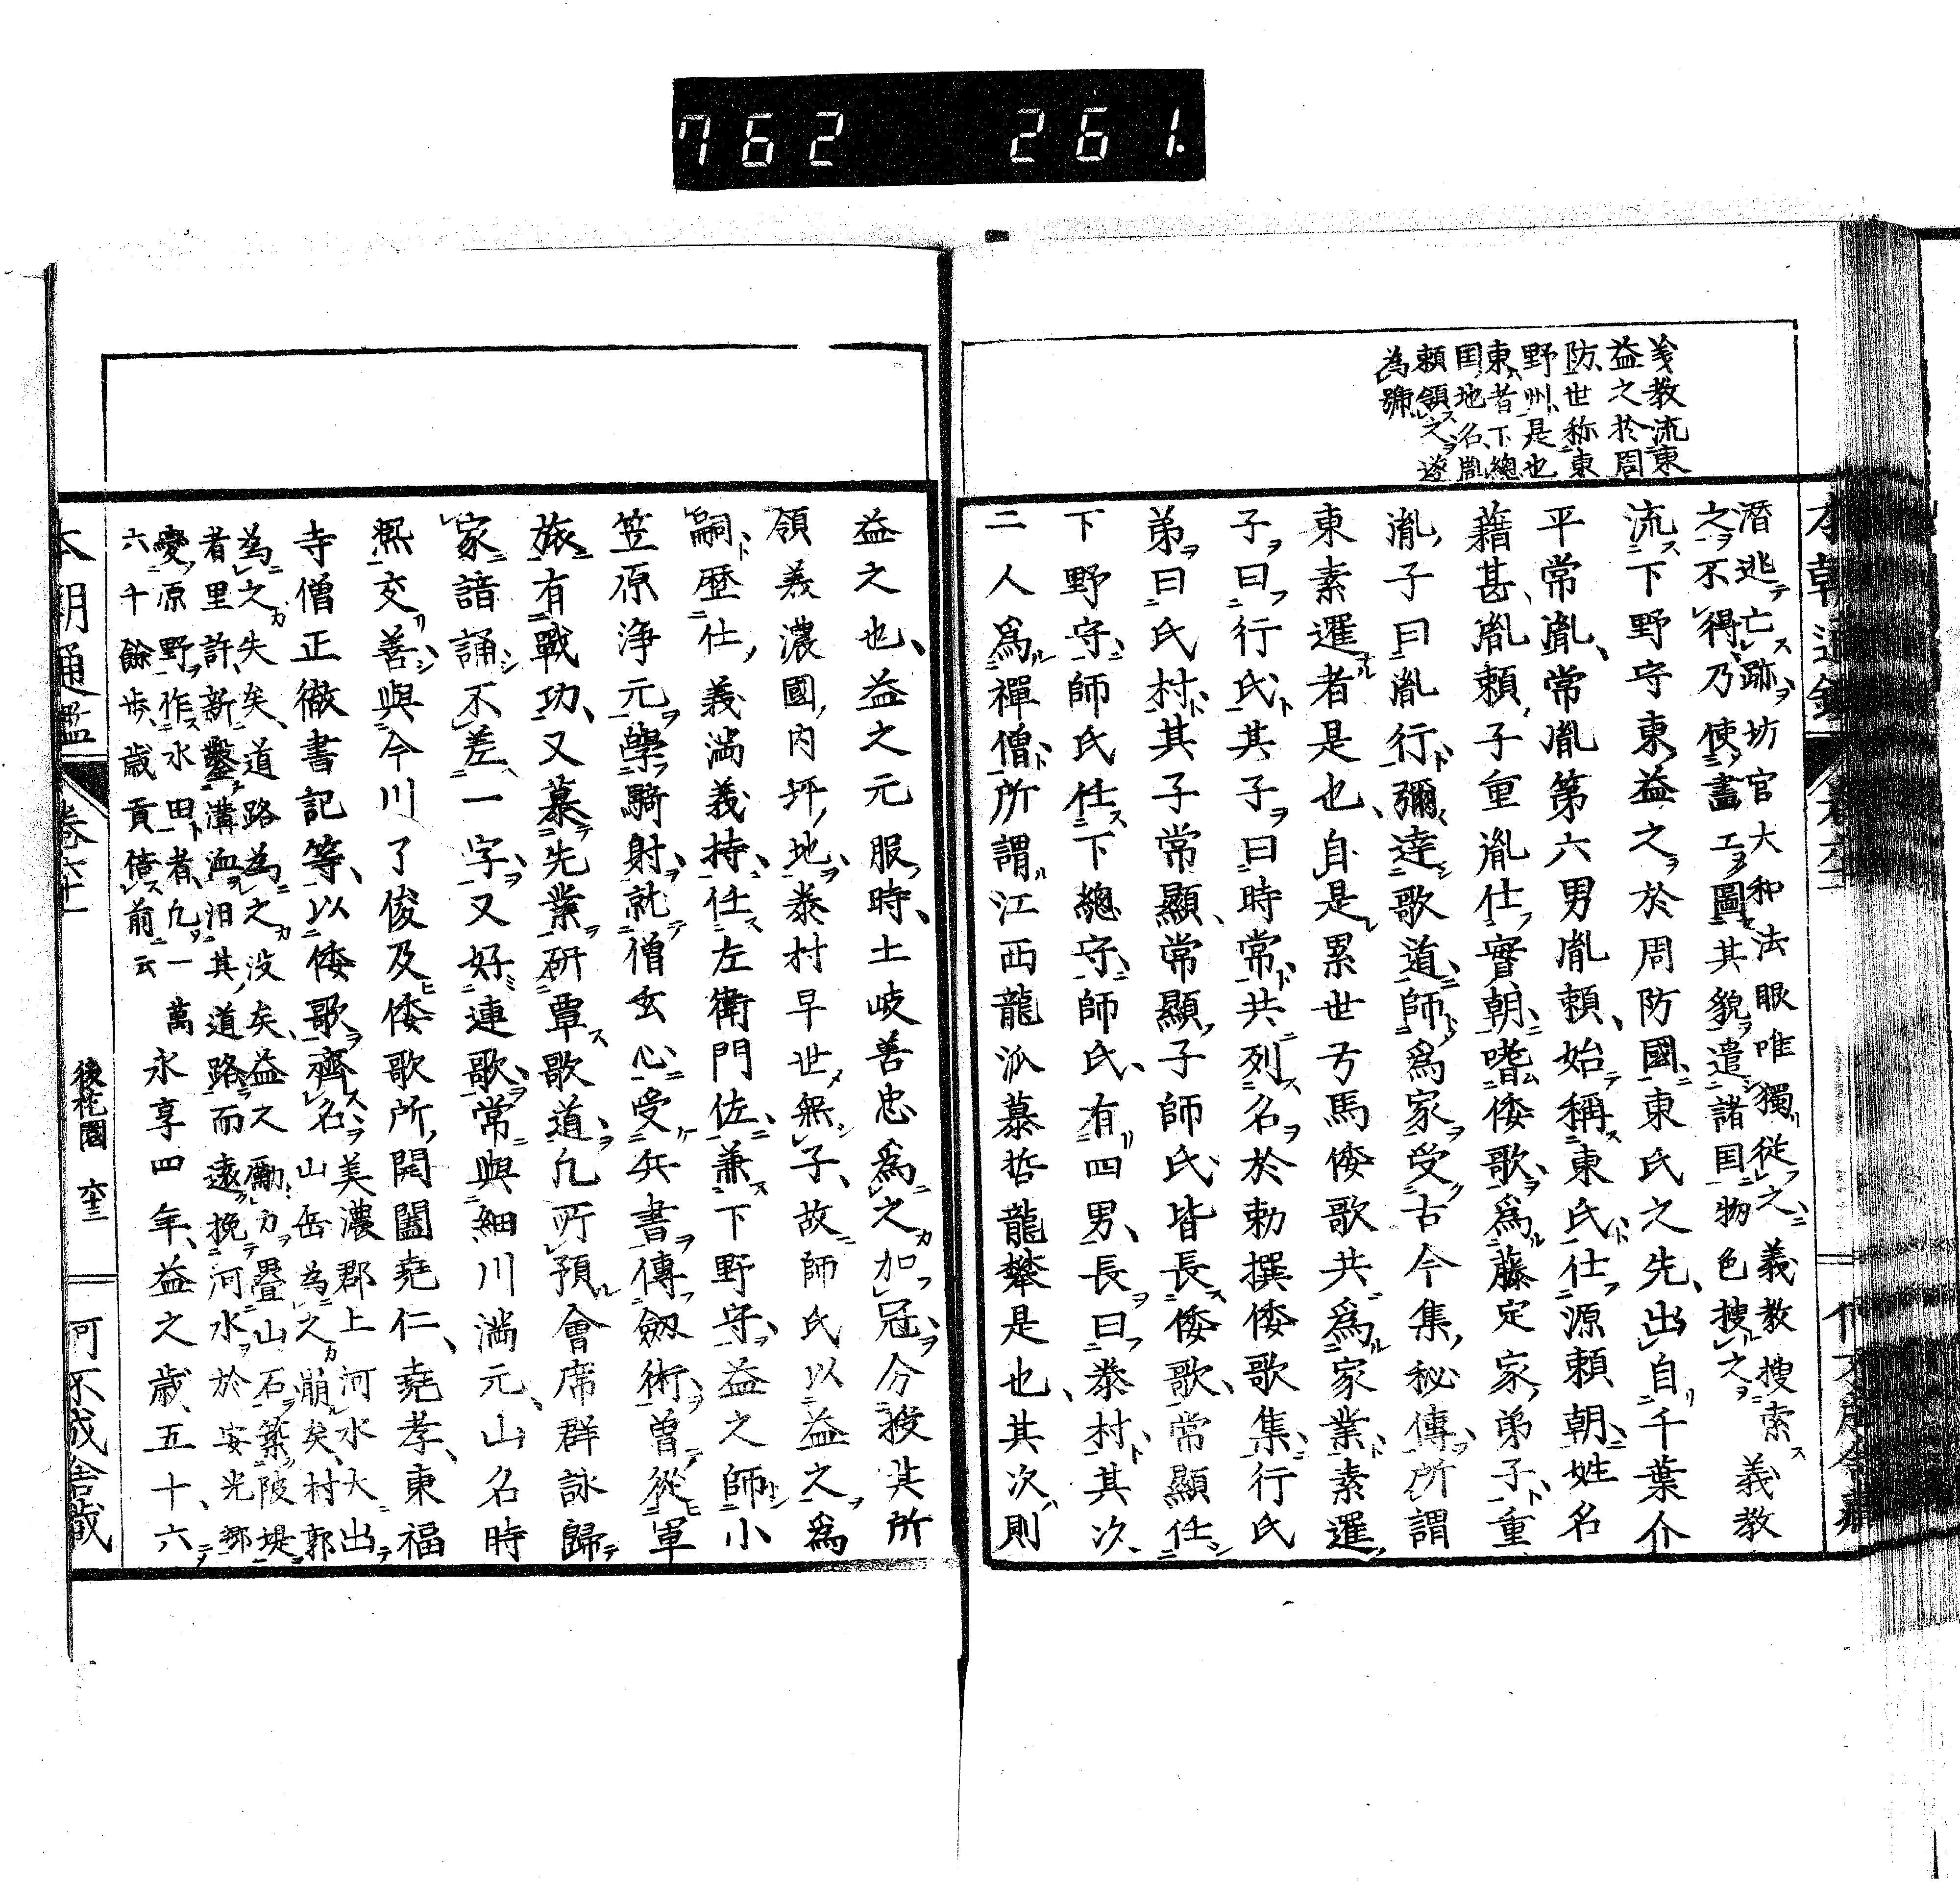 762 261.
義教流東
益之於周
防世称東
野州是也
東者下總
国地名胤
頼領之遂
為號
潜逃亡跡坊官大和法眼唯獨從之義教搜索
之不得乃使畫工圖其貌遣諸国物色搜之 義教
流下野守東益之於周防國東氏之先出自千葉介
平常胤常胤第六男胤頼始稱東氏仕源頼朝姓名
藉甚胤頼子重胤仕實朝嗜倭歌爲藤定家弟子重
胤子曰胤行彌達歌道師爲家受古今集秘傳所謂
東素暹者是也自是累世弓馬倭歌共爲家業素暹
子曰行氏其子曰時常共列名於勅撰倭歌集行氏
弟曰氏村其子常顯常顯子師氏皆長倭歌常顯任
下野守師氏任下總守師氏有四男長曰泰村其次
二人爲禪僧所謂江西龍派慕哲龍攀是也其次則
益之也益之元服時土岐善忠爲之加冠分授其所
領義濃國内坪地泰村早世無子故師氏以益之爲
嗣歴仕義満義持任左衛門佐兼下野守益之師小
笠原浄元學騎射就僧玄心受兵書傳劔術曽從軍
旅有戰功又慕先業研覃歌道凡所預會席群詠歸
家諳誦不差一字又好連歌常與細川満元山名時
熈交善與今川了俊及倭歌所開闔堯仁堯孝東福
寺僧正徹書記等以倭歌齊名 美濃郡上河水大出
山岳為之崩矣村郭
為之失矣道路為之没矣益之勵力疊山石築陂堤
者里許新鑿溝洫汨其道路而遠挽河水於安光郷
變原野作水田者凡一萬
六千餘歩歳貢倍前云
永享四年益之歳五十六
本朝通鑑 卷六十一 後花園 六十三 可不成舎蔵